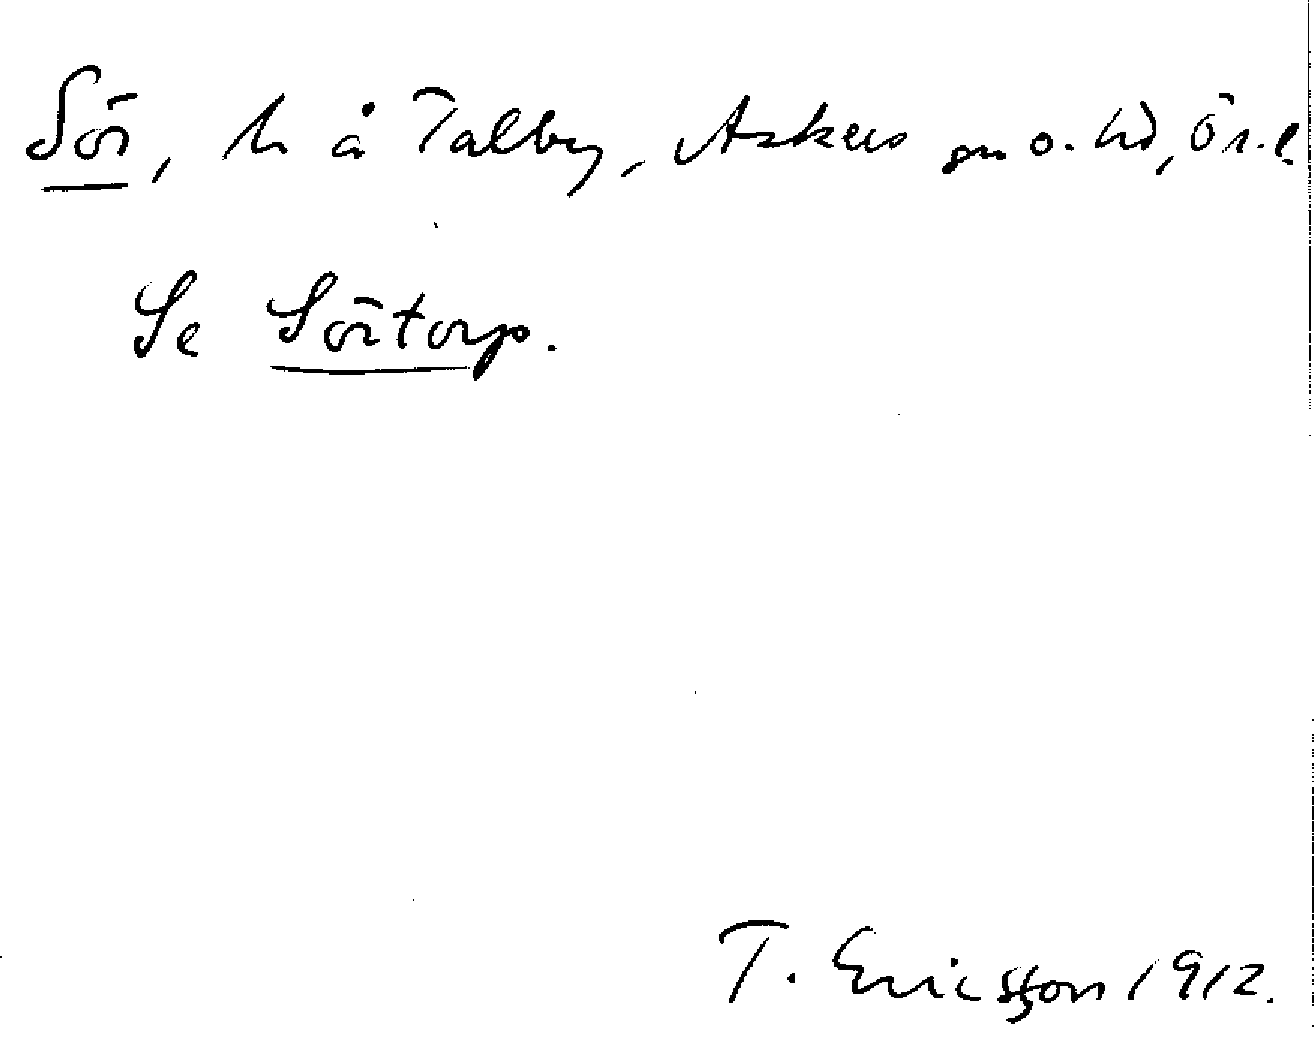 Sör, h å Talby, Askers sn o. hd, Ör. l.
Se Sörtorp.
T. Ericsson 1912.